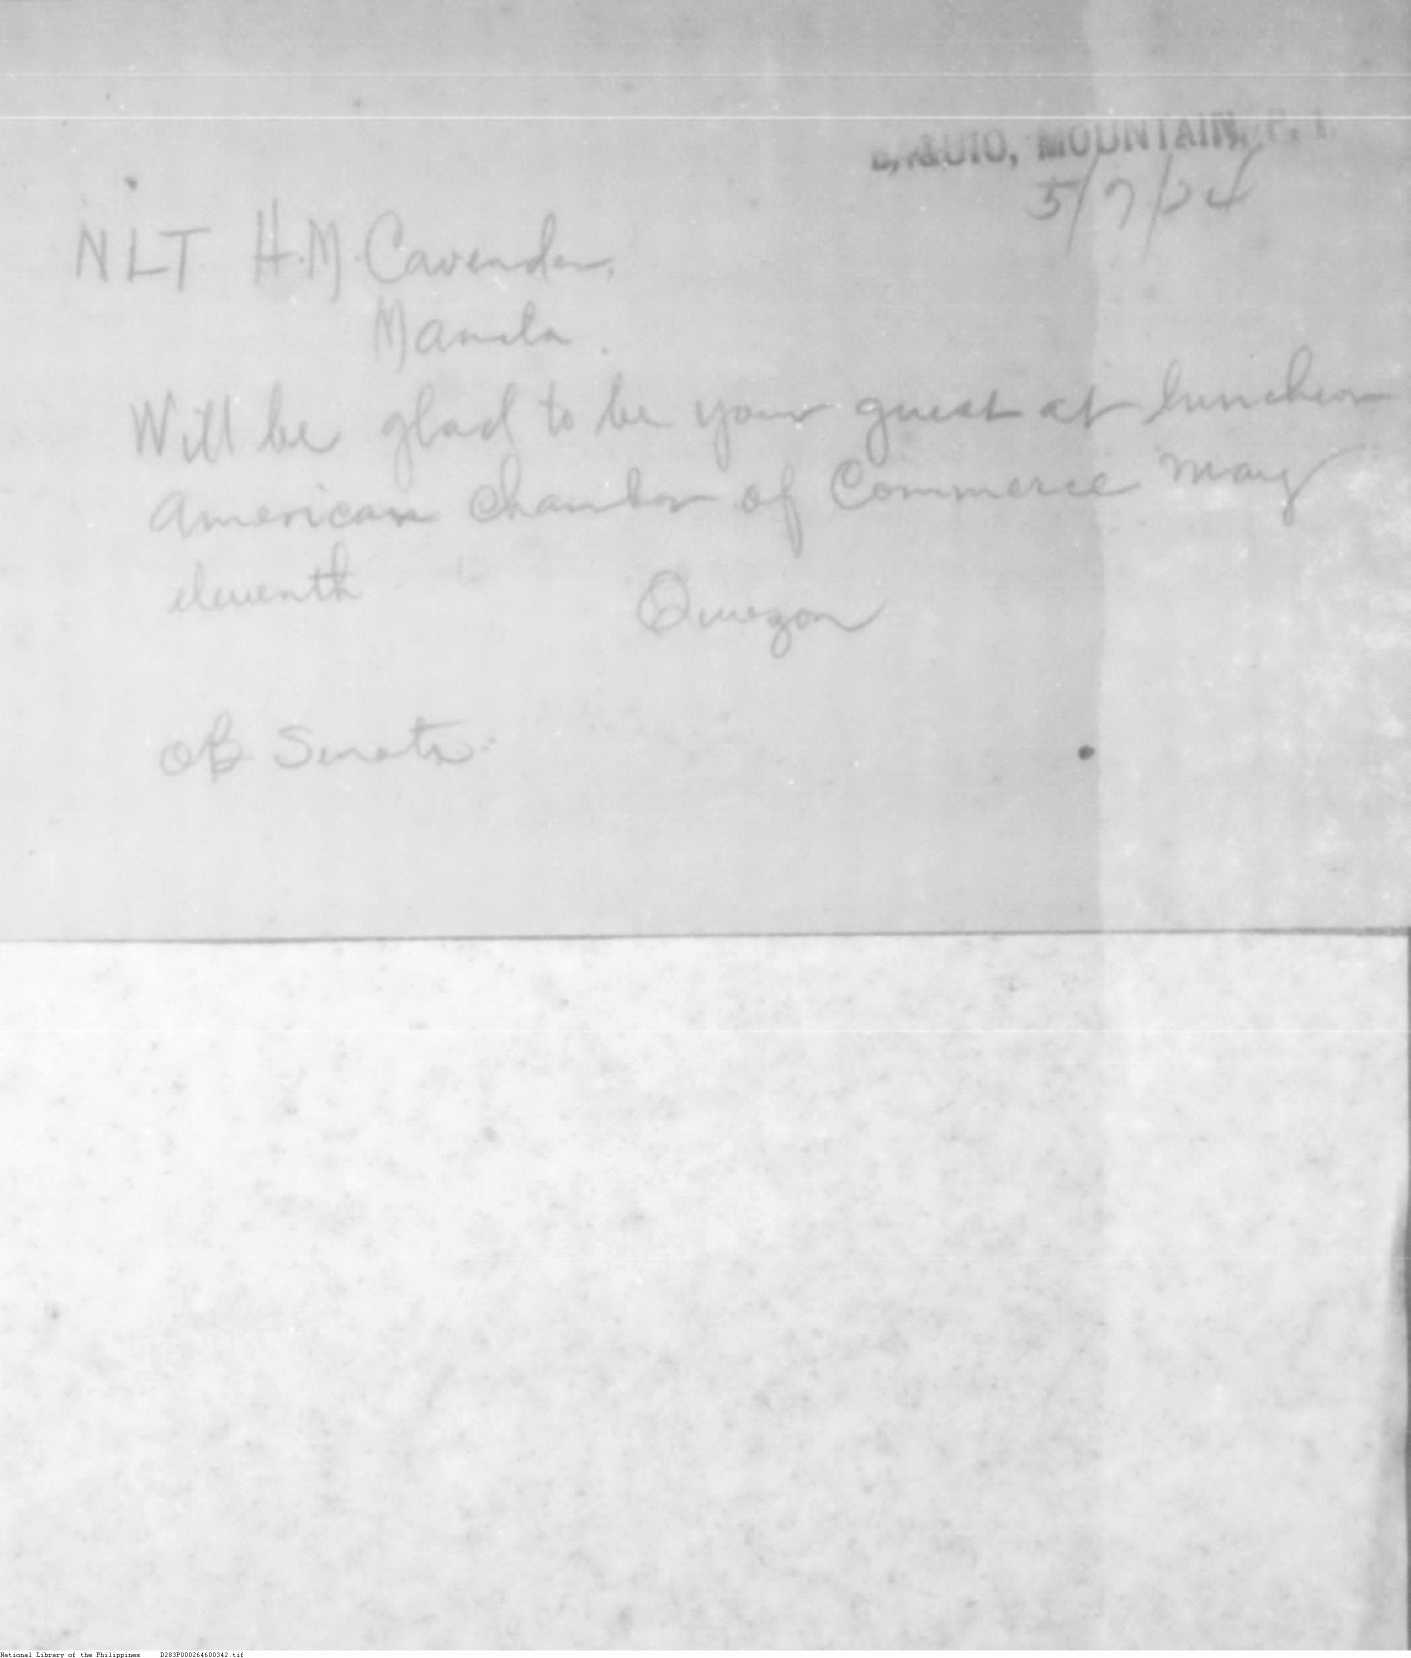 BAGUIO, MOUNTAIN, P. I.
5/7/24
NLT H.M. Cavender,
Manila.
Will be glad to be your guest at luncheon
American Chamber of Commerce May
eleventh
Quezon
OB Senate.
National Library of the Philippines D283P000264600342.tif